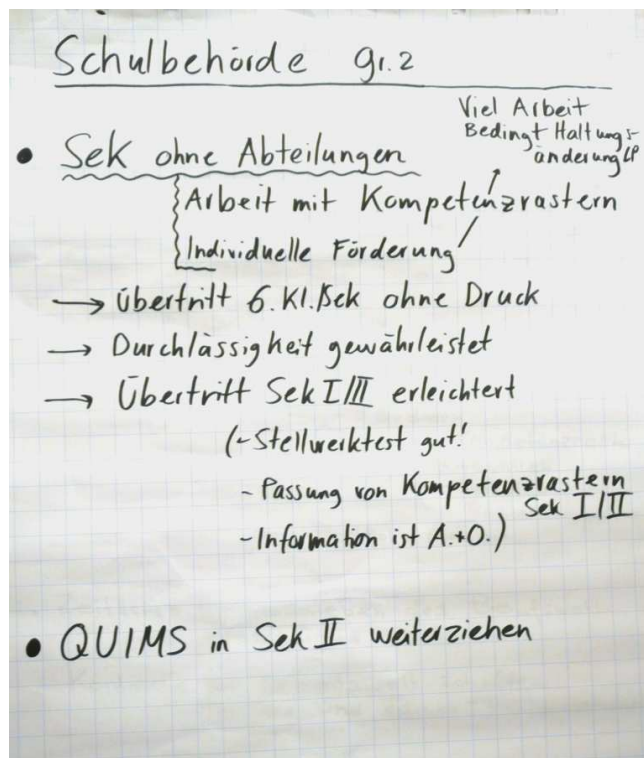 Schulbehörde Gr. 2
Viel Arbeit
Bedingt Haltungs-
änderung LP
• Sek ohne Abteilungen
Arbeit mit Kompetenzrastern
Individuelle Förderung
→ Übertritt 6. Kl./Sek ohne Druck
→ Durchlässigkeit gewährleistet
→ Übertritt Sek I/II erleichtert
(- Stellwerktest gut!
- Passung von Kompetenzrastern
Sek I/II
- Information ist A.+O.)
• QUIMS in Sek II weiterziehen